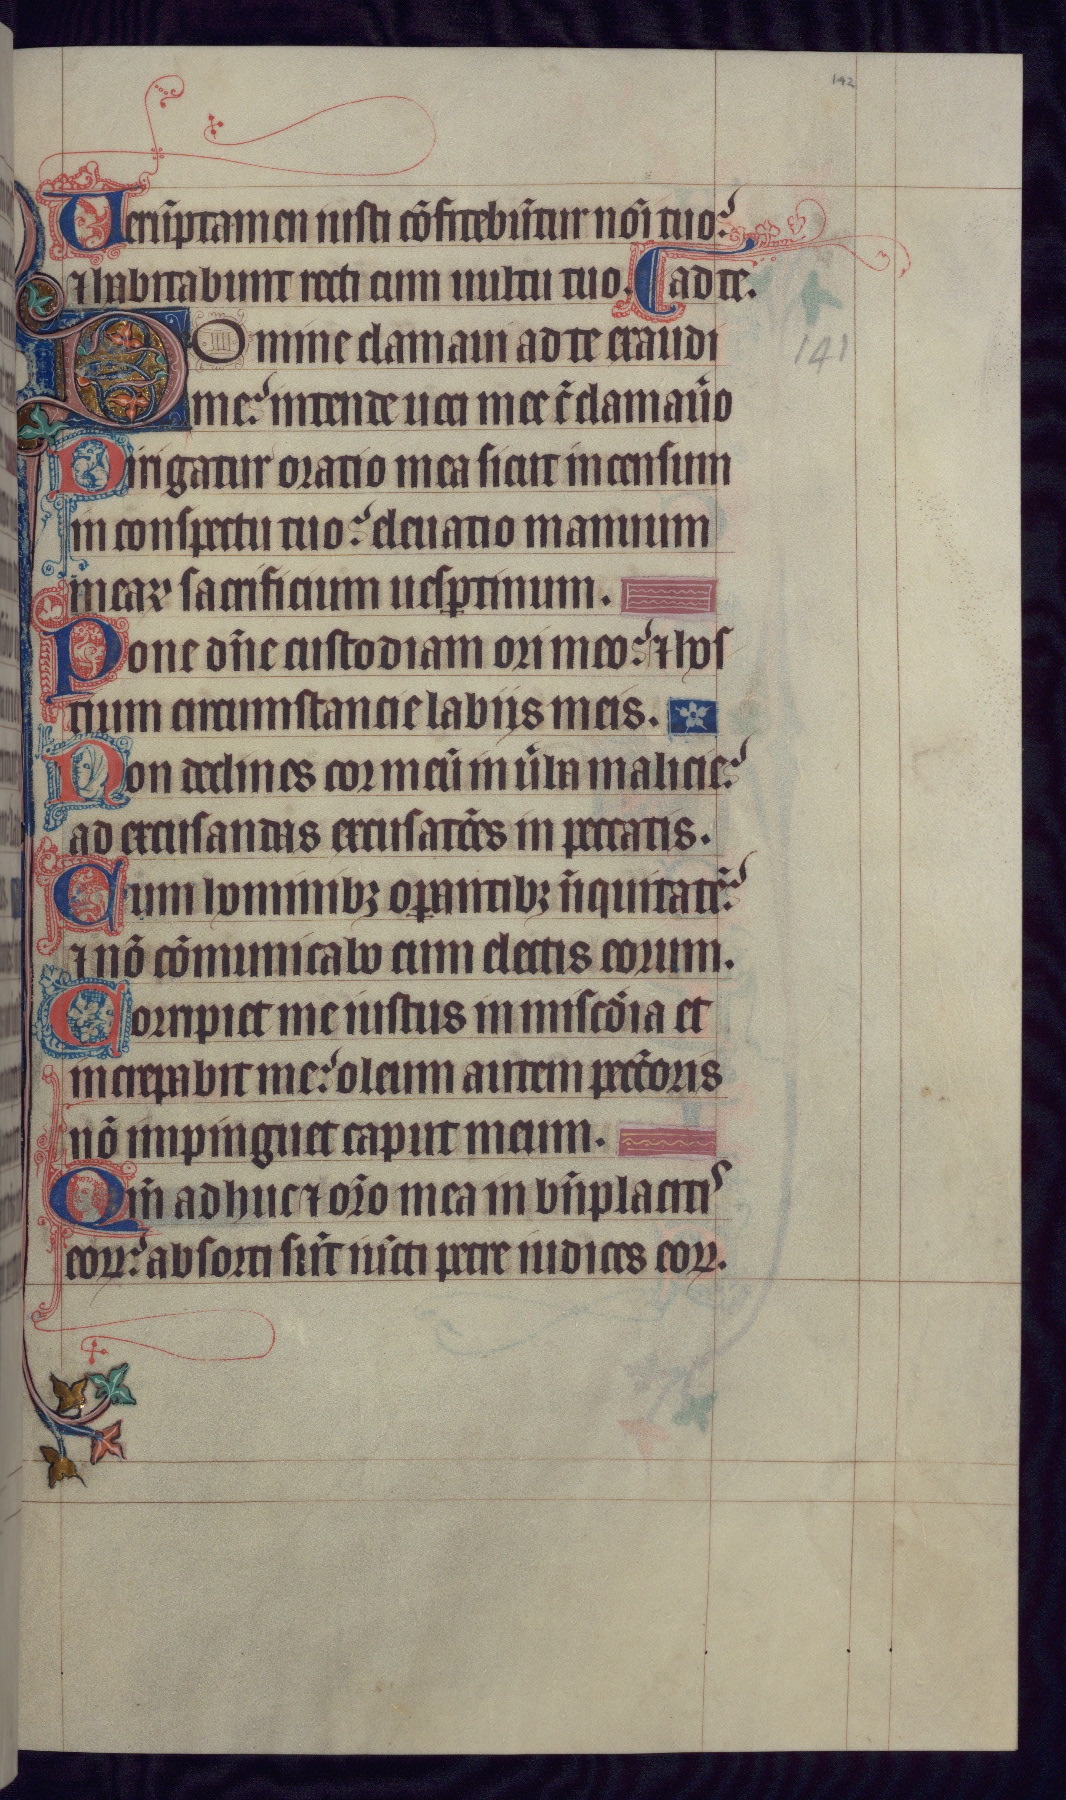 142
Uerũptamen iusti cõfitebũtur nõi tuo:
⁊ habitabunt recti cum uultu tuo. ad te.
141
DOmine clamaui ad te exaudi
me: intende uoci mee c̃ clamaũo
Dirigatur oratio mea sicut incensum
in conspectu tuo: eleuatio manuum
mearꝝ sacrificium uesꝑtinum.
Pone dñe custodiam ori meo: ⁊ hos
tium circumstancie labijs meis.
Non declines cor meũ in ũba malicie:
ad excusandas excusatões in peccatis.
Cum hominibꝫ oꝑantibꝫ iñquitatẽ:
⁊ nõ cõmunicabo cum electis eorum.
Corripiet me iustus in miscd̃ia et
increpabit me: oleum autem pecc̃oris
nõ impinguet caput meum.
Qm̃ adhuc ⁊ or̃o mea in bñplaciti
eorꝝ: absorti sũt iũcti petre iudices eorꝝ.